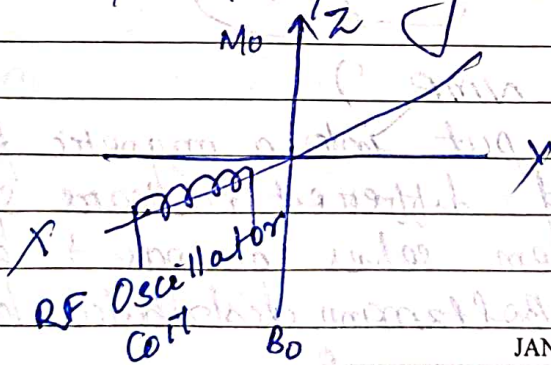 Mo Z
y
X
RF Oscillator
Coil
Bo
JAN